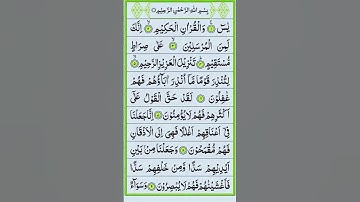 بِسْمِ اللهِ الرَّحْمٰنِ الرَّحِيْمِ
يٰسٓ ۞ وَالْقُرْاٰنِ الْحَكِيْمِ ۞ اِنَّكَ
لَمِنَ الْمُرْسَلِيْنَ ۞ عَلٰى صِرَاطٍ
مُّسْتَقِيْمٍ ۞ تَنْزِيْلَ الْعَزِيْزِ الرَّحِيْمِ ۞
لِتُنْذِرَ قَوْمًا مَّاۤ اُنْذِرَ اٰبَآؤُهُمْ فَهُمْ
غٰفِلُوْنَ ۞ لَقَدْ حَقَّ الْقَوْلُ عَلٰۤى
اَكْثَرِهِمْ فَهُمْ لَا يُؤْمِنُوْنَ ۞ اِنَّا جَعَلْنَا
فِيْۤ اَعْنَاقِهِمْ اَغْلٰلًا فَهِيَ اِلَى الْاَذْقَانِ
فَهُمْ مُّقْمَحُوْنَ ۞ وَجَعَلْنَا مِنْۢ بَيْنِ
اَيْدِيْهِمْ سَدًّا وَّمِنْ خَلْفِهِمْ سَدًّا
فَاَغْشَيْنٰهُمْ فَهُمْ لَا يُبْصِرُوْنَ ۞ وَسَوَآءٌ